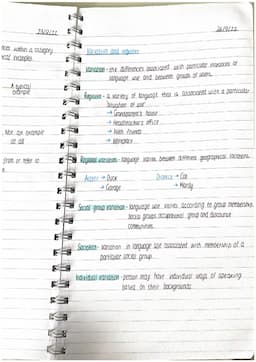 within a category
examples
A typical
example
Not an example
at all
from or refer to
Variation and registers
Variation - the differences associated with particular instances of
language use and between groups of users.
Register - a variety of language that is associated with a particular
situation of use
→ Grandparent's house
→ Headteacher's office
→ With friends
→ Workplace
Regional variation - language varies between different geographical locations.
Accent → Duck
→ Garage
Dialect → Cob
→ Mardy
Social group variation - language use varies according to group membership.
Social groups occupational group and discourse
communities.
Sociolect - Variation in language use associated with membership of a
particular social group.
Individual variation - person may have individual ways of speaking
based on their backgrounds